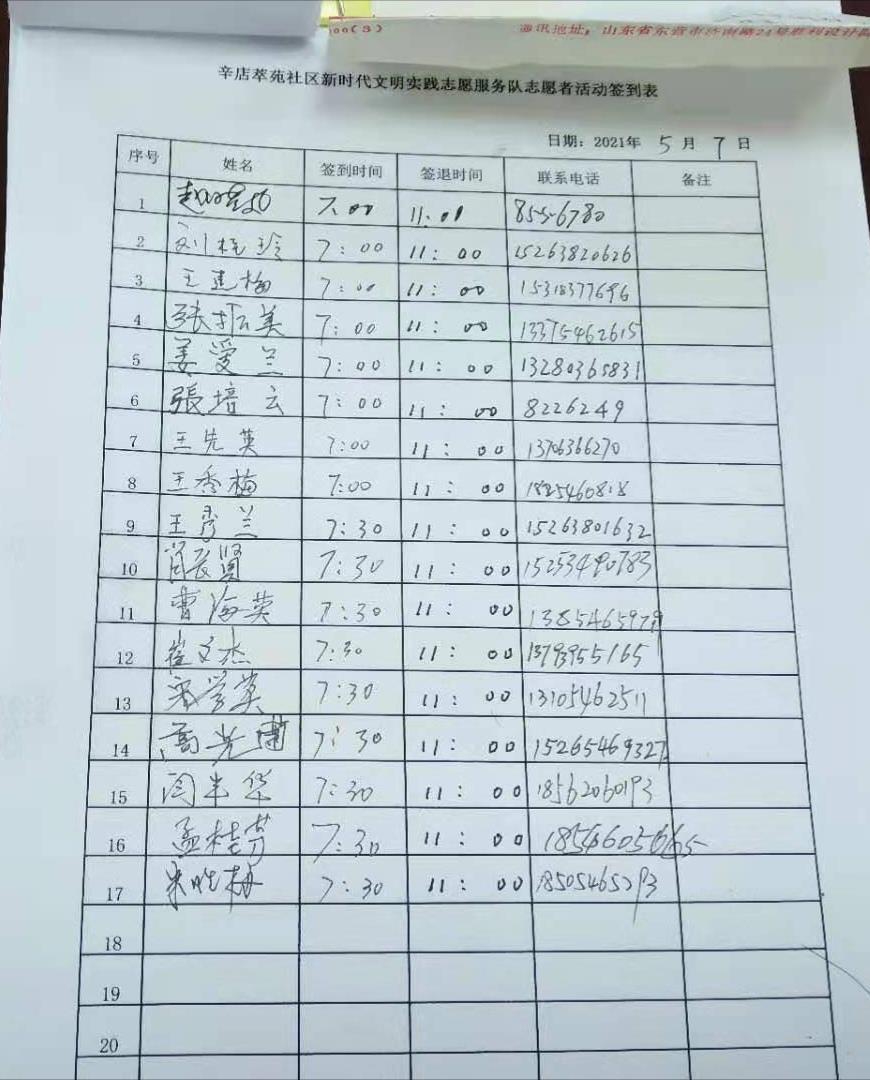 100(3)
通讯地址：山东省东营市济南路24号胜利设计院
辛店萃苑社区新时代文明实践志愿服务队志愿者活动签到表
日期：2021年 5 月 7 日
序号 姓名 签到时间 签退时间 联系电话 备注
1 7:00 11:01 8556780
2 刘桂玲 7:00 11:00 15263820626
3 王建梅 7:00 11:00 15318377696
4 张振美 7:00 11:00 13375462615
5 姜爱兰 7:00 11:00 13280365831
6 張培云 7:00 11:00 8226249
7 王先英 7:00 11:00 13706366270
8 王秀梅 7:00 11:00
9 王秀兰 7:30 11:00 15263801632
10 肖长贤 7:30 11:00
11 曹海英 7:30 11:00
12 崔文杰 7:30 11:00 13793955165
13 宋学英 7:30 11:00 13105462511
14 7:30 11:00 15265469327
15 闫半华 7:30 11:00 18562060193
16 孟桂芳 7:30 11:00
17 7:30 11:00 18505465293
18
19
20